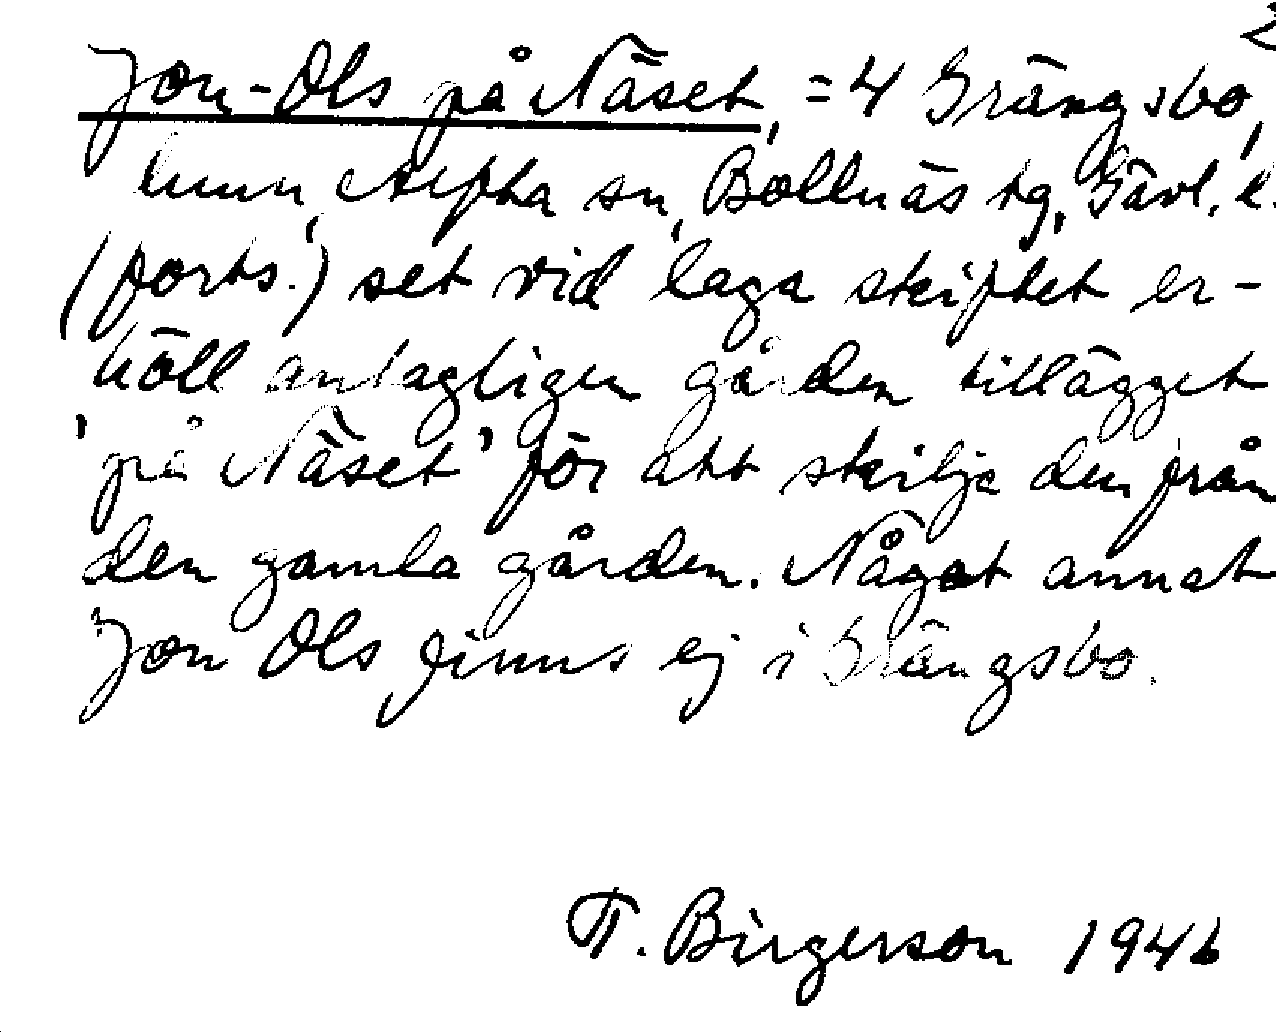 2
Jon-Ols på Näset, =4 Grängsbo,
hmn, Alfta sn, Bollnäs tg, Gävl. l.
(forts.) set vid laga skiftet er-
höll antagligen gården tillägget
'på Näset' för att skilja den från
den gamla gården. Något annat
Jon Ols finns ej i Grängsbo.
T. Birgerson 1946